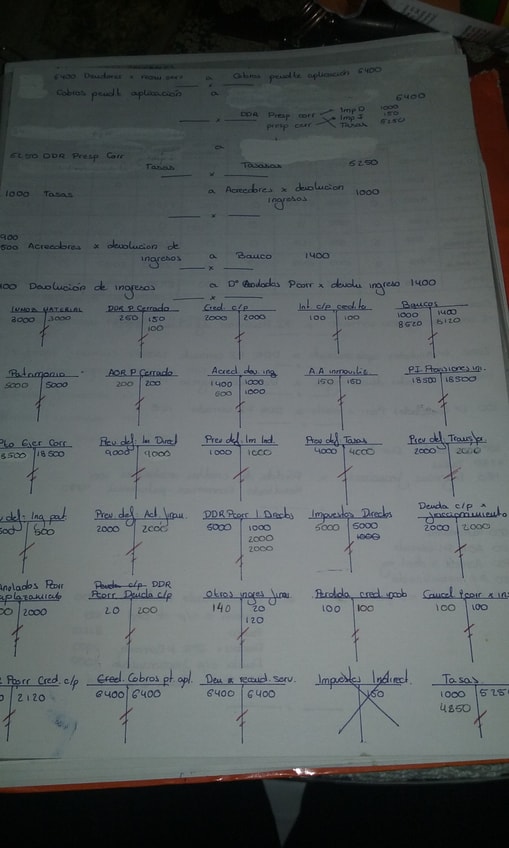 6400 Deudores x recau. serv. a Cobros pendte aplicación 6400
Cobros pendte aplicación a
6400
DDR Presp corr Imp D 1000
presp corr Imp I 150
Tasas 5250
a
5250 DDR Presp Corr
Tasas Tasasas 5250
1000 Tasas a Acreedores x devolucion
ingresos 1000
900
500 Acreedores x devolucion de
ingresos a Banco 1400
400 Devolución de ingresos a Dº Anulados Pcorr x devolu ingreso 1400
INMOB MATERIAL DDR P Cerrado Cred. c/p Int. c/p credito Bancos
3000 3000 250 150 2000 2000 100 100 1000 1400
100 8520 8120
Patrimonio AOR P Cerrado Acreed. dev. ing A.A inmoviliz PI Previsiones in.
5000 5000 200 200 1400 1000 150 150 18500 18500
600 1000
Pto Ejer Corr. Prev def. Im Direct Prev def. Im Ind. Prev def. Tasas Prev def. Transfer.
18500 9000 9000 1000 1000 4000 4000 2000 2000
def. Ing pat. Prev def. Act finan. DDR Pcorr I Directos Impuestos Directos Deuda c/p x
fraccionamiento
500 500 2000 2000 5000 1000 5000 5000 2000 2000
2000 1000
2000
Anulados Pcorr Deuda c/p DDR
aplazamiento Pcorr Deuda c/p Otros ingres finan. Perdida cred. incob Cancel Pcorr x ins
2000 20 200 140 20 100 100 100 100
120
Pcorr Cred. c/p Cred. Cobros pt. apl. Deu x recaud. serv. Impuestos Indirect. Tasas
2120 6400 6400 6400 6400 150 1000 525
4850